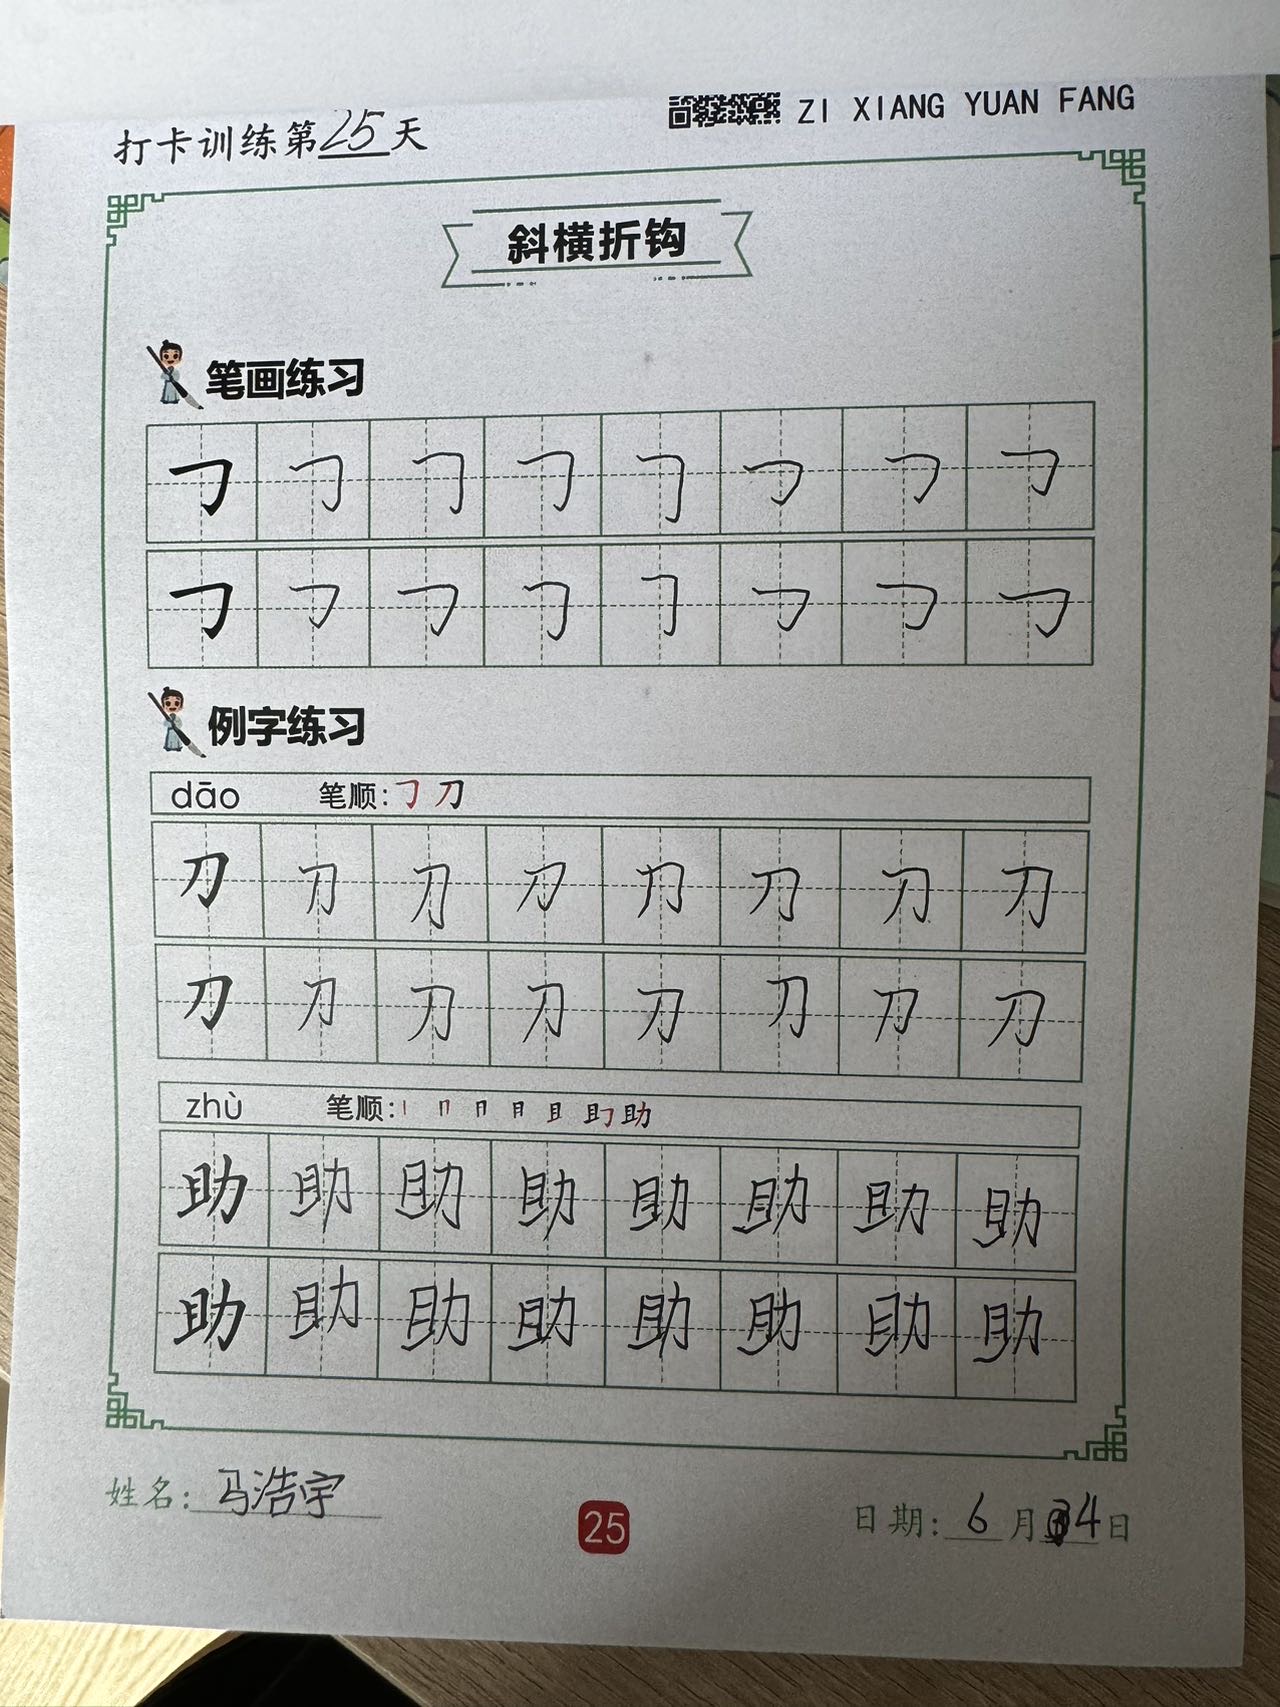 打卡训练第25天 ZI XIANG YUAN FANG
斜横折钩
笔画练习
㇆ ㇆ ㇆ ㇆ ㇆ ㇆ ㇆ ㇆
㇆ ㇆ ㇆ ㇆ ㇆ ㇆ ㇆ ㇆
例字练习
dāo 笔顺:㇆ 刀
刀 刀 刀 刀 刀 刀 刀 刀
刀 刀 刀 刀 刀 刀 刀 刀
zhù 笔顺:丨 冂 月 且 助
助 助 助 助 助 助 助 助
助 助 助 助 助 助 助 助
姓名:马浩宇
25
日期:6月4日